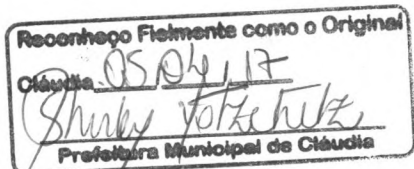 Reconheço Fielmente como o Original
Cláudia 05, 04, 17
Shirley
Prefeitura Municipal de Cláudia